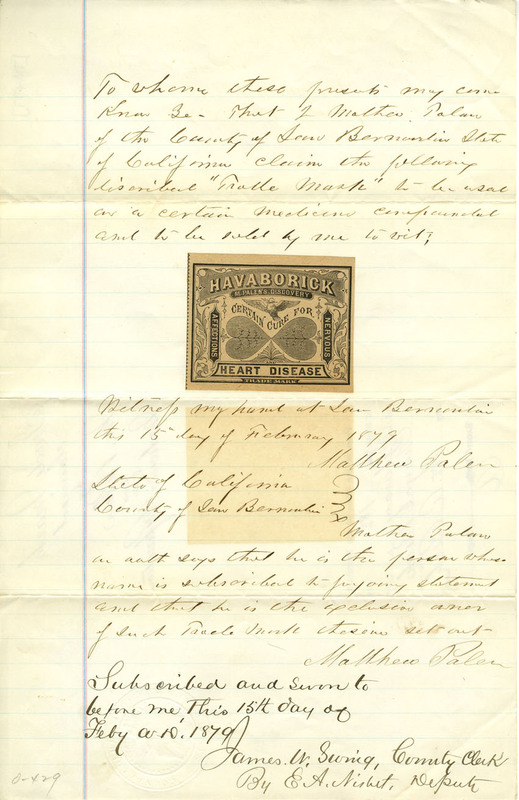 To whome these presents my come
Know Be - That I Mathew Palen
of the County of San Bernardin State
of California claim the following
discribed "Trade Mark" to be used
on a certain medicine compounded
and to be sold by me to wit;
HAVABORICK
M. PALEN'S DISCOVERY
CERTAIN CURE FOR
AFFECTIONS
NERVOUS
AND
HEART DISEASE
TRADE MARK
Witness my hand at San Bernardin
this 15 day of February 1879
Matthew Palen
State of California
County of San Bernardin
Mathew Palen
on oath says that he is the person whose
name is subscribed to forgoing statement
and that he is the exclusive owner
of such Trade Mark therein set out
Matthew Palen
Subscribed and sworn to
before me this 15th day of
Feby A.D. 1879
James W. Ewing, County Clerk
By E. A. Nisbet, Deputy
0-429